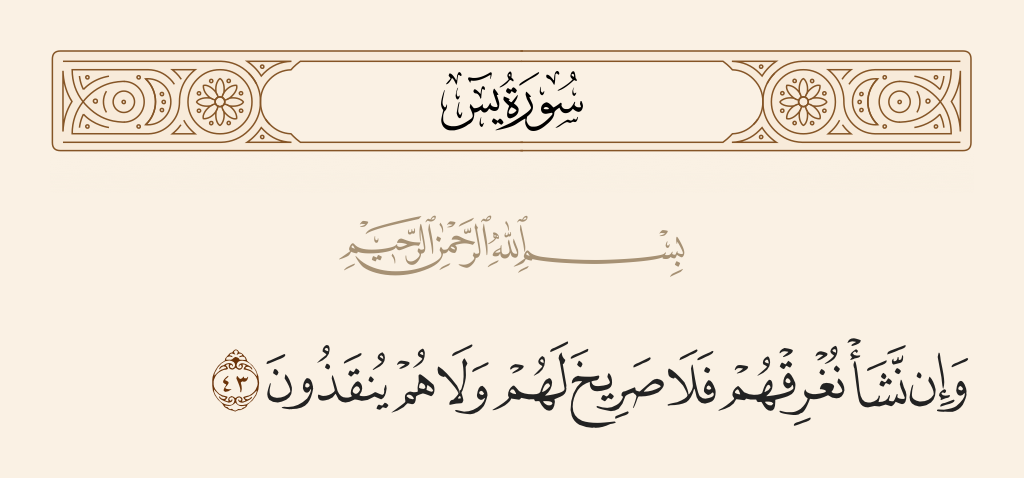 سُورَةُ يسٓ
بِسْمِ ٱللَّهِ ٱلرَّحْمَٰنِ ٱلرَّحِيمِ
وَإِن نَّشَأْ نُغْرِقْهُمْ فَلَا صَرِيخَ لَهُمْ وَلَا هُمْ يُنقَذُونَ ٤٣